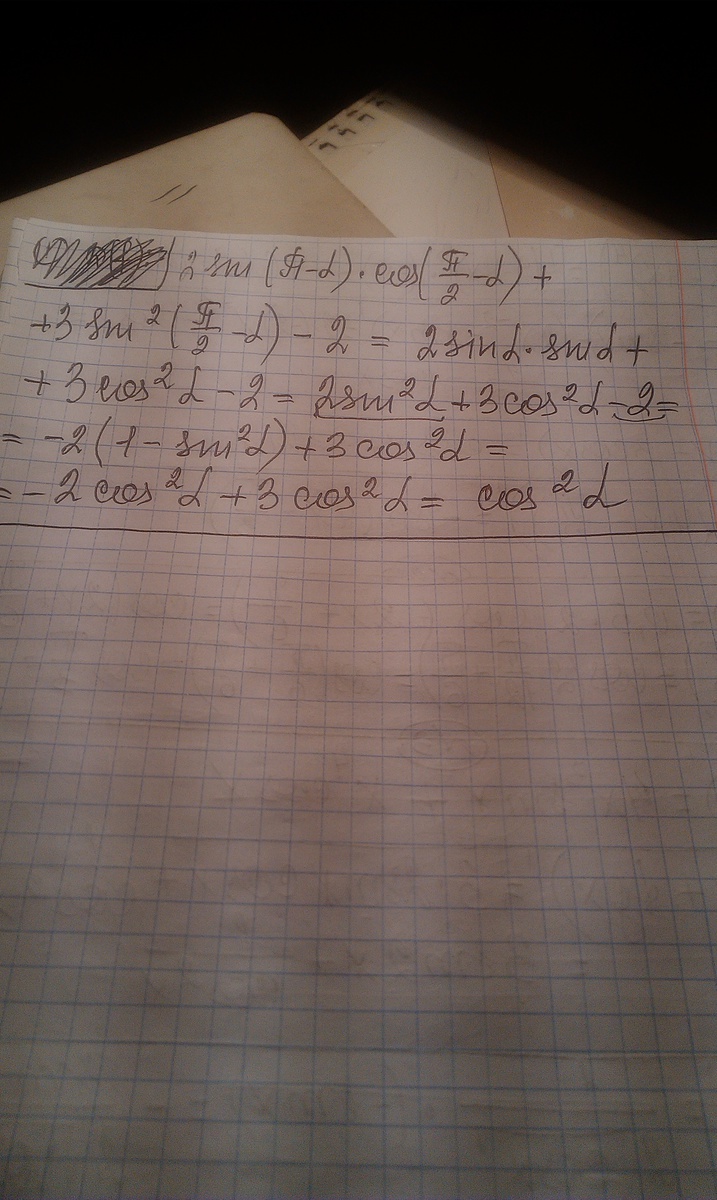 2 sin (π-α) · cos(π/2 -α) +
+3 sin²(π/2 -α) - 2 = 2sinα·sinα +
+ 3cos²α -2 = 2sin²α +3cos²α -2=
= -2(1- sin²α)+3cos²α =
=-2cos²α +3cos²α = cos²α